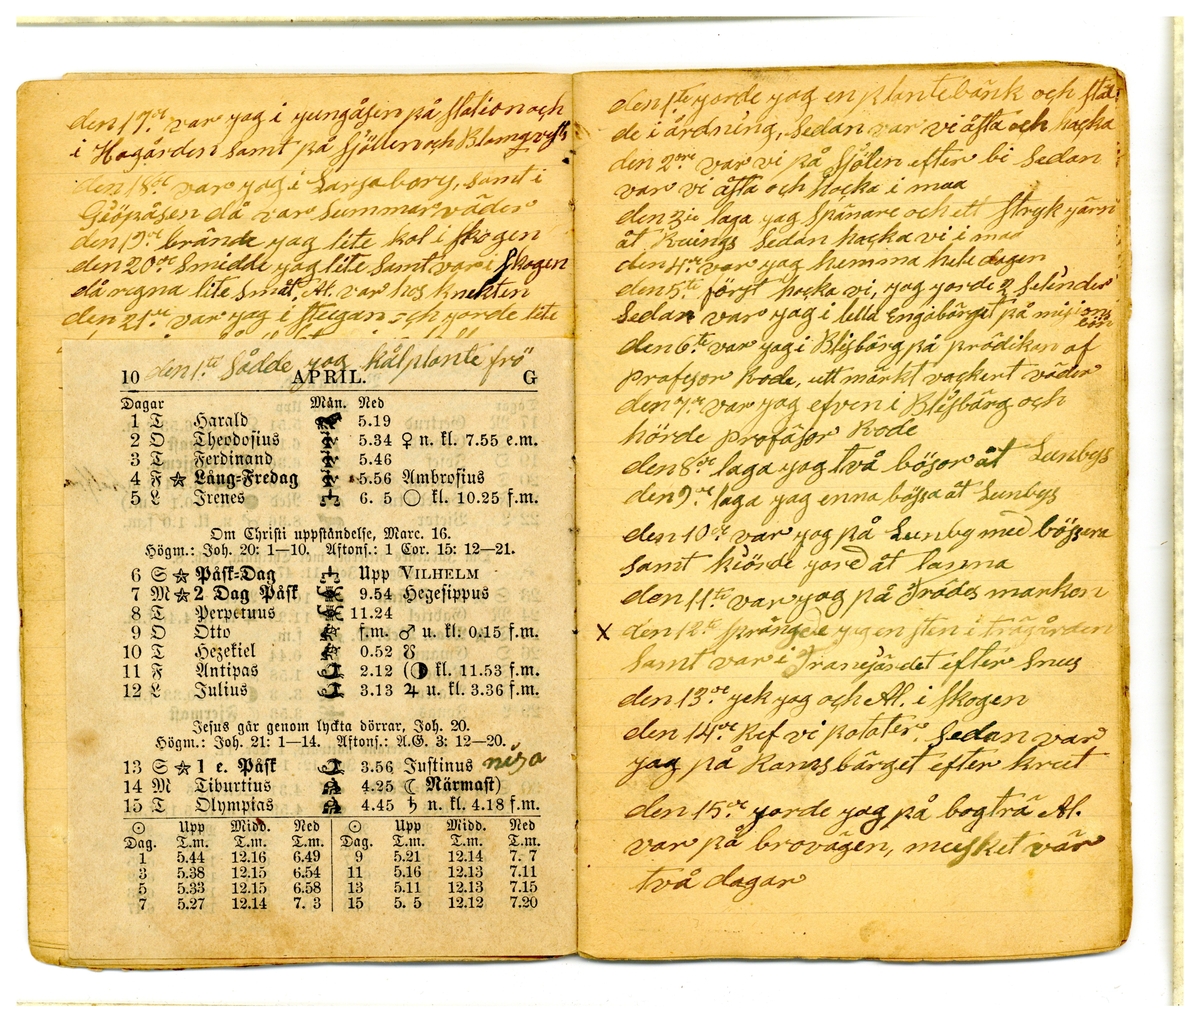 den 17de var jag i jungåsen på station och
i Hagården samt på Sjölen och Blomqvists
den 18de var yag i Laxsabory, samt i
Giöpåsen då var Summar väder
den 19de brände yag lite kol i skogen
den 20de Smidde yag lite samt var i skogen
då regna lite Smått, Al. var hos knekten
den 21de var yag i stugan och yorde lite
den 1ta Sådde yag kålplante frö
10 APRIL. G
Dagar Mån. Ned
1 T Harald 5.19
2 O Theodosius 5.34 ♀ n. kl. 7.55 e.m.
3 T Ferdinand 5.46
4 F ☆ Lång-Fredag 5.56 Ambrosius
5 L Irenes 6. 5 ○ kl. 10.25 f.m.
Om Christi uppståndelse, Marc. 16.
Högm.: Joh. 20: 1—10. Aftons.: 1 Cor. 15: 12—21.
6 S ☆ Påsk-Dag Upp VILHELM
7 M ☆ 2 Dag Påsk 9.54 Hegesippus
8 T Perpetuus 11.24
9 O Otto f.m. ♂ u. kl. 0.15 f.m.
10 T Hezekiel 0.52 ☋
11 F Antipas 2.12 (◑ kl. 11.53 f.m.
12 L Julius 3.13 ♃ u. kl. 3.36 f.m.
Jesus går genom lyckta dörrar, Joh. 20.
Högm.: Joh. 21: 1—14. Aftons.: A.G. 3: 12—20.
13 S ☆ 1 e. Påsk 3.56 Justinus
14 M Tiburtius 4.25 ☾ Närmast)
15 T Olympias 4.45 ♄ n. kl. 4.18 f.m.
☉ Upp Midd. Ned ☉ Upp Midd. Ned
Dag. T.m. T.m. T.m. Dag. T.m. T.m. T.m.
1 5.44 12.16 6.49 9 5.21 12.14 7. 7
3 5.38 12.15 6.54 11 5.16 12.13 7.11
5 5.33 12.15 6.58 13 5.11 12.13 7.15
7 5.27 12.14 7. 3 15 5. 5 12.12 7.20
den 1te yorde yag en plantebänk och stäl
de i årdning, Sedan var vi åsta och hacka
den 2dre var vi på Sjölen efter bi Sedan
var vi åsta och hacka i maa
den 3ie laga yag Spänare och ett Strykyärn
åt Kuings Sedan hacka vi i maa
den 4de var yag hemma hele dagen
den 5te först hacka vi, yag yorde 2 Selinder
Sedan var yag i lilla Engabärget på misions
bön
den 6te var yag i Blisbärg på prädikan af
Profesor Rode, ett märkt vackert väder
den 7de var yag efven i Blisbärg och
hörde Profäsor Rode
den 8de laga yag två bösor åt Lunbys
den 9de laga yag enna bössa åt Lunbys
den 10de var yag på Lunby med bössera
samt kiörde yord åt Lanna
den 11te var yag på Träde markon
x den 12te Sprängde yag en sten i trägården
Samt var i Tranejärdet efter Snus
den 13de yek yag och Al. i skogen
den 14de Ref vi potater. Sedan var
yag på Ramsbärget efter krut
den 15de yorde yag på bogträ Al.
var på brovägen, mycket vär
två dagar